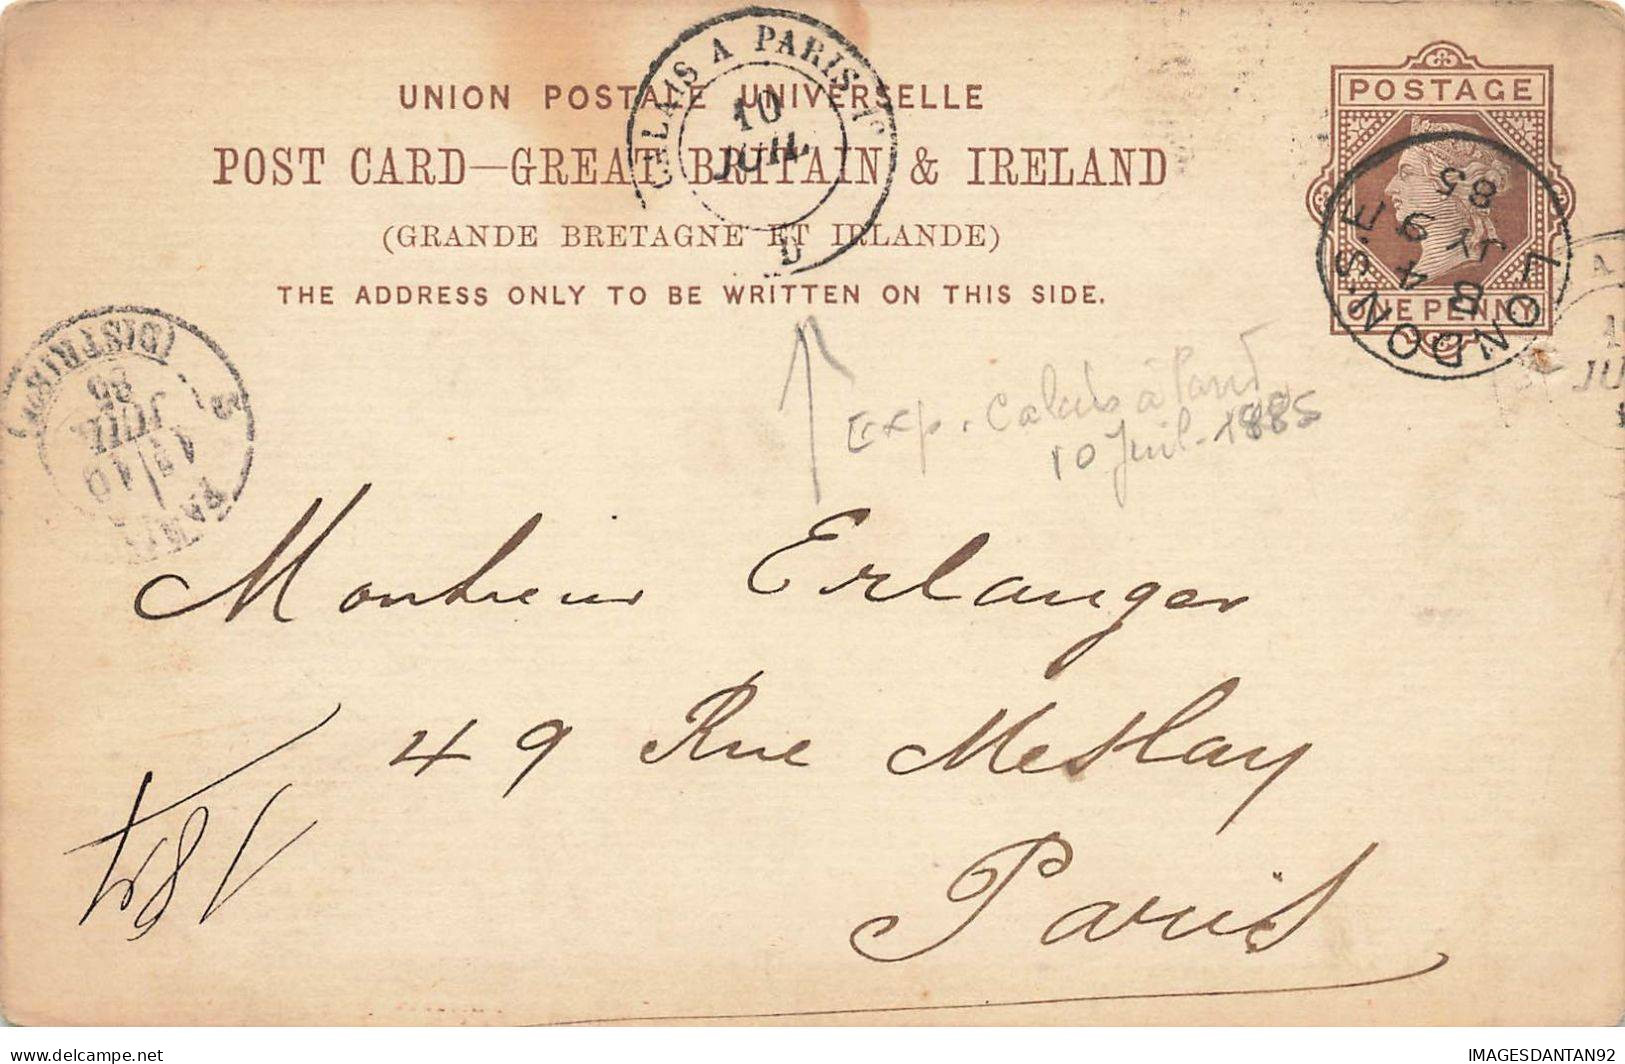 UNION POSTALE UNIVERSELLE
POST CARD—GREAT BRITAIN & IRELAND
(GRANDE BRETAGNE ET IRLANDE)
THE ADDRESS ONLY TO BE WRITTEN ON THIS SIDE.
POSTAGE
ONE PENNY
CALAIS A PARIS 1°
10
JUIL
D
LONDON.S.E
B
4
JY 9
85
PARIS
(DISTRIBON)
JUIL
85
JU
Exp. Calais à Paris
10 Juil. 1885
Monsieur Erlanger
49 Rue Meslay
Paris
delcampe.net
IMAGESDANTAN92